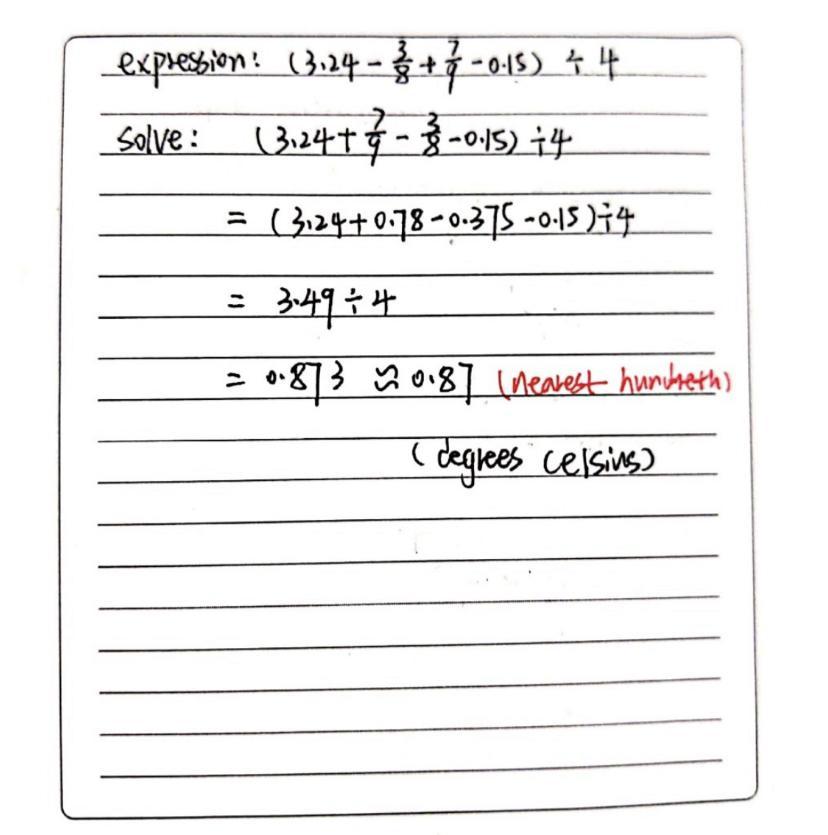 expression: (3.24 - 3/8 + 7/9 - 0.15) ÷ 4
solve: (3.24 + 7/9 - 3/8 - 0.15) ÷ 4
= (3.24 + 0.78 - 0.375 - 0.15) ÷ 4
= 3.49 ÷ 4
= 0.873 ≈ 0.87 (nearest hundreth)
(degrees celsius)